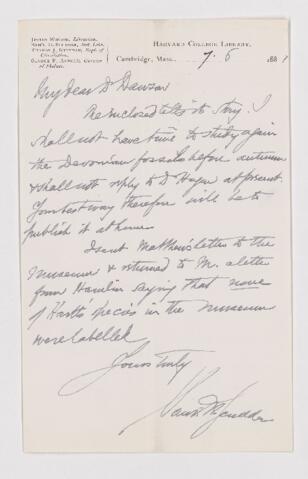 JUSTIN WINSOR, Librarian.
SAM'L H. SCUDDER, Asst. Libr.
Curator
HARVARD COLLEGE LIBRARY,
Cambridge, Mass., 7. 6 1881
My dear Dr Dawson
The enclosed tells its story. I
shall not have time to study again
the Devonian fossils before autumn
& shall not reply to Dr Hagen at present
Your best way therefore will be to
publish it at home
I sent Matthew's letter to the
Museum & returned to M. a letter
from Hamlin saying that none
of Hartt's species in the Museum
were labelled
Yours truly
Sam. H. Scudder